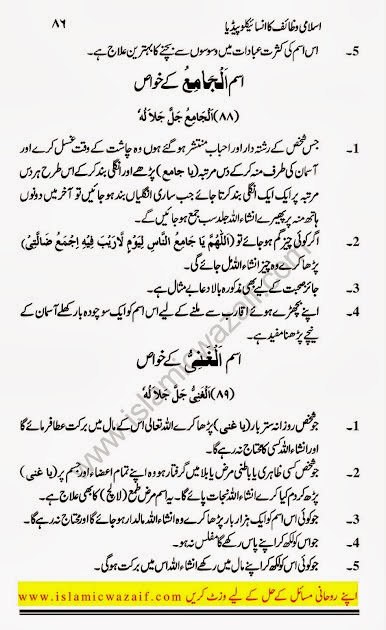 اسلامی وظائف کا انسائیکلوپیڈیا ۸۶
5۔ اس اسم کی کثرت عبادات میں وسوسوں سے بچنے کا بہترین علاج ہے۔
اسم اَلْجَامِعُ کے خواص
(۸۸) اَلْجَامِعُ جَلَّ جَلَا لُهٗ
1۔ جس شخص کے رشتہ دار اور احباب منتشر ہو گئے ہوں وہ چاشت کے وقت غسل کرے اور
آسمان کی طرف منہ کر کے دس مرتبہ (یا جامع) پڑھے اور انگلی بند کر کے اس طرح ہر دس
مرتبہ پر ایک ایک انگلی بند کرتا جائے جب ساری انگلیاں بند ہو جائیں تو آخر میں دونوں
ہاتھ منہ پر پھیرے انشاءاللہ جلد سب جمع ہو جائیں گے۔
2۔ اگر کوئی چیز گم ہو جائے تو (اَللّٰهُمَّ يَا جَامِعَ النَّاسِ لِيَوْمٍ لَّارَيْبَ فِيْهِ اِجْمَعْ ضَالَّتِيْ)
پڑھا کرے وہ چیز انشاءاللہ مل جائے گی۔
3۔ جائز محبت کے لیے بھی مذکورہ بالا دعا بے مثال ہے۔
4۔ اپنے بچھڑے ہوئے اقارب سے ملنے کے لیے اس اسم کو ایک سو چودہ بار کھلے آسمان کے
نیچے پڑھنا مفید ہے۔
اسم اَلْغَنِیُّ کے خواص
(۸۹) اَلْغَنِیُّ جَلَّ جَلَا لُهٗ
1۔ جو شخص روزانہ ستر بار (یا غنی) پڑھا کرے اللہ تعالی اس کے مال میں برکت عطا فرمائے گا
اور انشاءاللہ کسی کا محتاج نہ رہے گا۔
2۔ جو شخص کسی ظاہری یا باطنی مرض یا بلا میں گرفتار ہو وہ اپنے تمام اعضاء اور جسم پر (یا غنی)
پڑھ کر دم کیا کرے انشاءاللہ نجات پائے گا۔ یہ اسم مرض طمع (لالچ) کا بھی علاج ہے۔
3۔ جو کوئی اس اسم کو ایک ہزار بار پڑھا کرے وہ انشاءاللہ مالدار ہو جائے گا اور محتاج نہ رہے گا۔
4۔ جو کوئی اس کو لکھ کر اپنے پاس رکھے گا مفلس نہ ہو۔
5۔ جو کوئی اس کو لکھ کر اپنے مال میں رکھے گا انشاءاللہ اس میں برکت ہو گی۔
اپنے روحانی مسائل کے حل کے لیے وزٹ کریں www.islamicwazaif.com
www.islamicwazaif.com